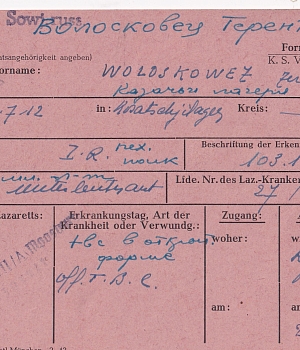 Sowjruss
Волосковец Терен
atsangehörigkeit angeben)
For
K. S. V
orname:
WOLOSKOWEZ
Казачьи лагери
.7.12
in: Kosatschj Lager
Kreis:
I.R. мех.
полк
Beschriftung der Erken
103.1
мл. л-т
Unterleutnant
Lfde. Nr. des Laz.-Kranken
27/
azaretts:
Erkrankungstag, Art der
Krankheit oder Verwundg.:
Zugang:
woher:
tbc в открыт.
форме
off. T. B. C.
am: